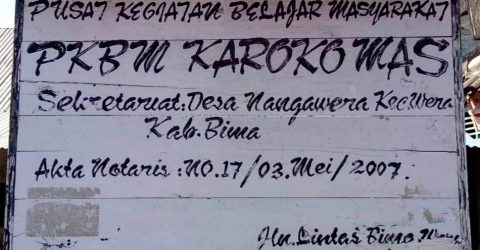 PUSAT KEGIATAN BELAJAR MASYARAKAT
PKBM KAROKO MAS
Sekretariat: Desa Nangawera Kec. Wera
Kab. Bima
Akta Notaris : NO. 17/03. Mei/2007.
Jln. Lintas Bima.